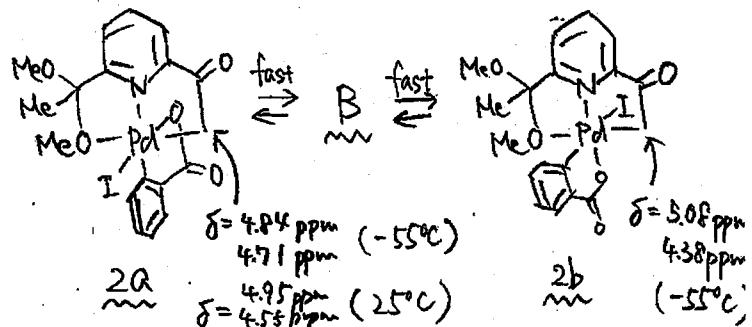 MeO
Me
MeO
N
O
Pd
O
I
O
fast
B
fast
MeO
Me
MeO
N
O
I
Pd
O
O
δ= 4.84 ppm
4.71 ppm (-55°C)
2a
δ= 4.95 ppm
4.55 ppm (25°C)
2b
δ= 5.08 ppm
4.38 ppm
(-55°C)